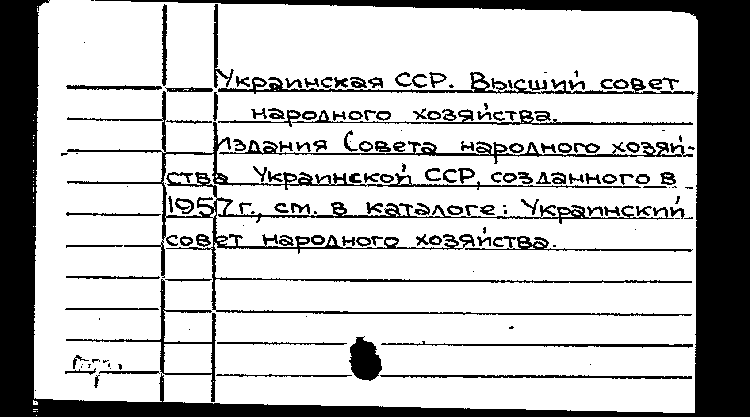 Украинская ССР. Высший совет
народного хозяйства.
Издания Совета народного хозяй-
ства Украинской ССР, созданного в
1957 г., см. в каталоге: Украинский
совет народного хозяйства.